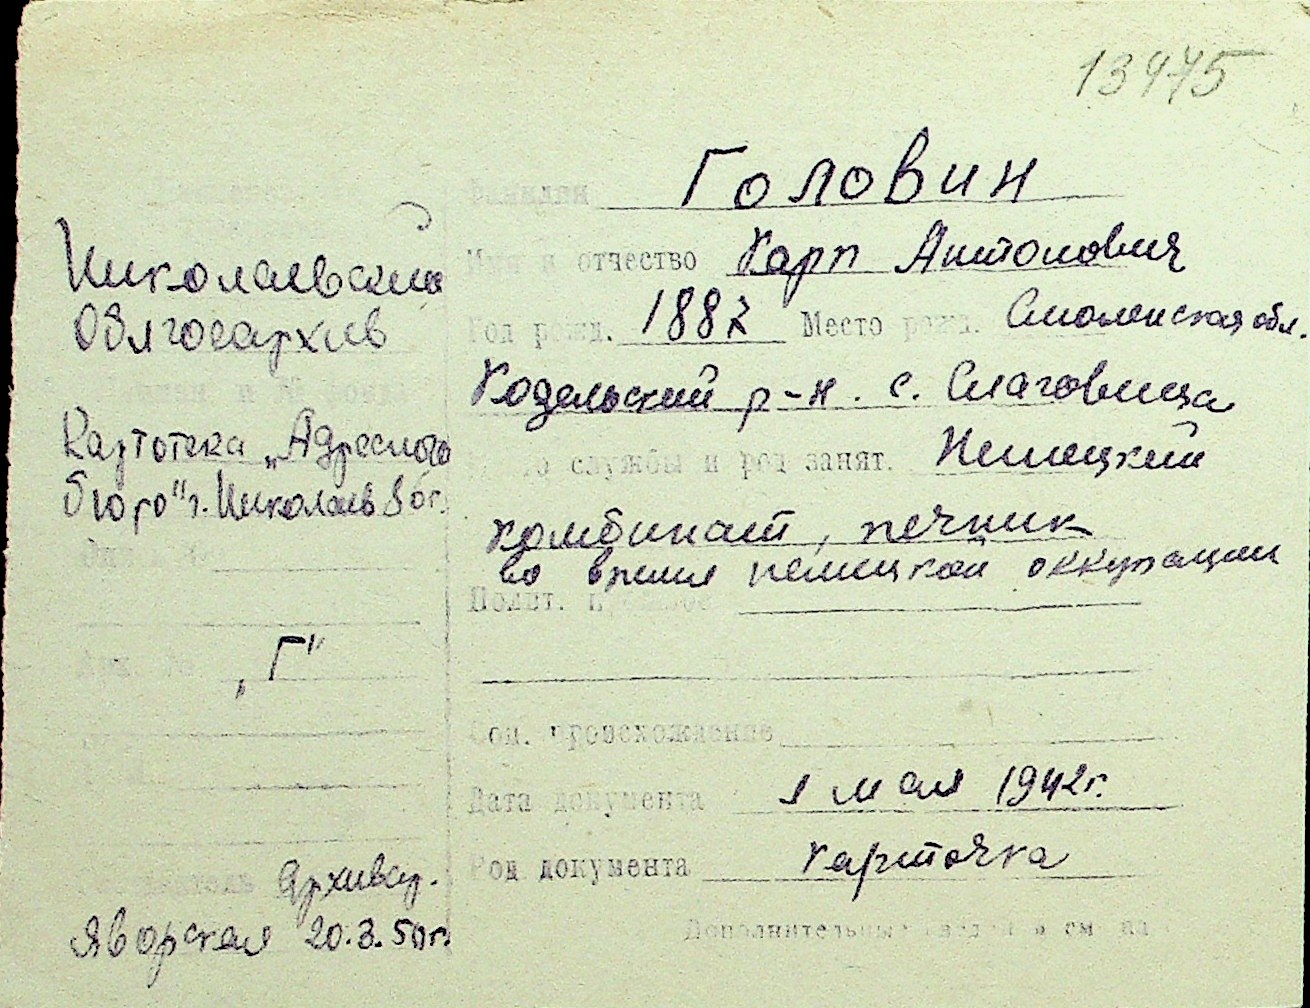 13475
Фамилия Головин
Имя и отчество Карп Антонович
Год рожд. 1887 Место рожд. Смоленская обл.
Ходельский р-н. с. Слаговища
службы и род занят. Немецкий
комбинат, печник
во время немецкой оккупации
Полит.
Соц. происхождение
Дата документа 1 мая 1942г.
Род документа карточка
Дополнительные сведения см. на
Николаевский
Облгосархив
Картотека „Адресного
бюро" г. Николаев
„Г"
Архивар.
Яворская 20.3.50г.